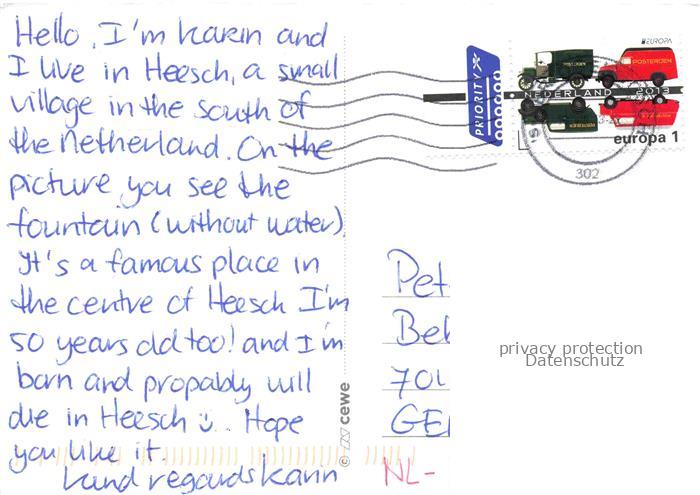 Hello, I'm Karin and
I live in Heesch, a small
village in the south of
the Netherland. On the
picture you see the
fountain (without water).
It's a famous place in
the centre of Heesch I'm
50 years old too! and I'm
born and propably will
die in Heesch ü.. Hope
you like it.
kind regards Karin
© cewe
PRIORITY
EUROPA
POSTERIJEN
NEDERLAND 2013
europa 1
302
Pet
Bel
GE
privacy protection
Datenschutz
NL-